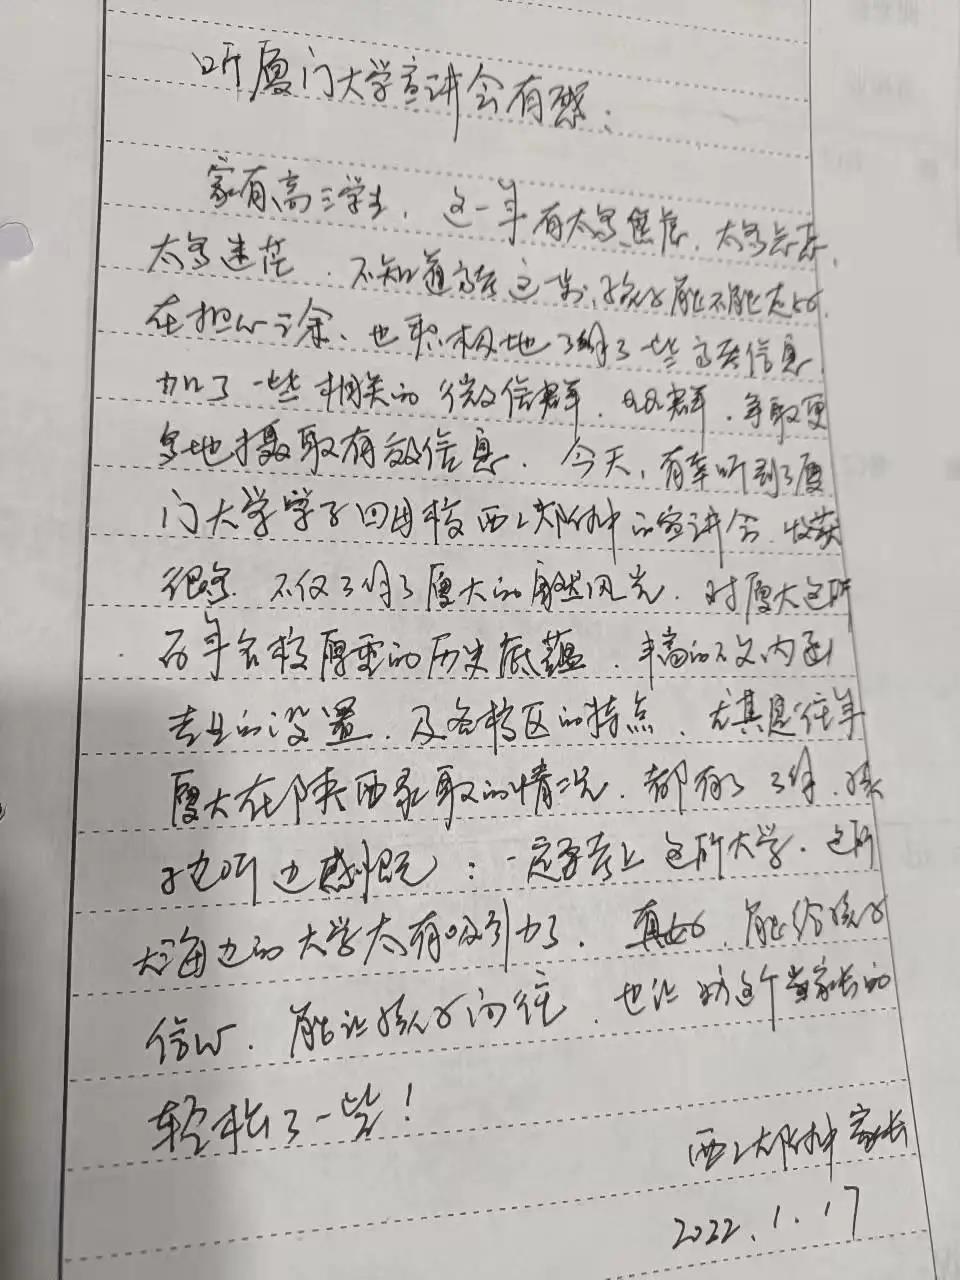 听厦门大学宣讲会有感：
家有高三学生，这一年有太多焦虑，太多忐忑，
太多迷茫，不知道高考这一步，孩子能不能走好。
在担心之余，也积极地了解了一些高考信息，
加了一些相关的微信群、QQ群，争取更
多地摄取有效信息。今天，有幸听到了厦
门大学学子回母校西工大附中的宣讲会，收获
很多，不仅了解了厦大的自然风光，对厦大这所
百年名校厚重的历史底蕴，丰富的人文内涵
专业的设置，及各校区的特点，尤其是往年
厦大在陕西录取的情况，都有了了解，孩
子也听边感慨：一定要考上这所大学，这所
大海边的大学太有吸引力了。真好，能给孩子
信心，能让孩子向往，也让我这个当家长的
轻松了一些！
西工大附中家长
2022.1.17